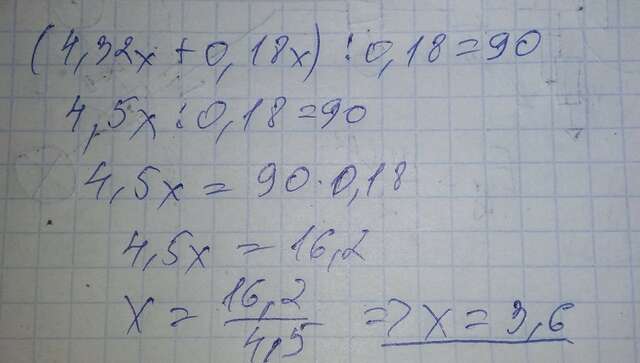 (4,32x + 0,18x) : 0,18 = 90
4,5x : 0,18 = 90
4,5x = 90 · 0,18
4,5x = 16,2
x = 16,2/4,5 => x = 3,6